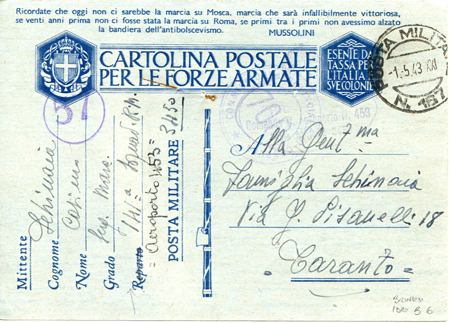 Ricordate che oggi non ci sarebbe la marcia su Mosca, marcia che sarà infallibilmente vittoriosa,
se venti anni prima non ci fosse stata la marcia su Roma, se primi tra i primi non avessimo alzato
la bandiera dell'antibolscevismo.
MUSSOLINI
CARTOLINA POSTALE
PER LE FORZE ARMATE
ESENTE DA
TASSA PER
L'ITALIA
SVE COLONIE
POSTA MILITA
1.5.43
N. 167
57
Mittente
Cognome Schinaia
Nome
Grado Serg. Magg.
Reparto 141ª Squad. R.M.
Aeroporto 453
POSTA MILITARE 3450
Alla Gent.ma
Famiglia Schinaia
Via G. Pisanelli 18
Taranto